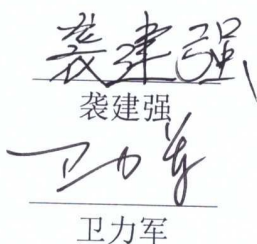 袭建强
袭建强
卫力军
卫力军